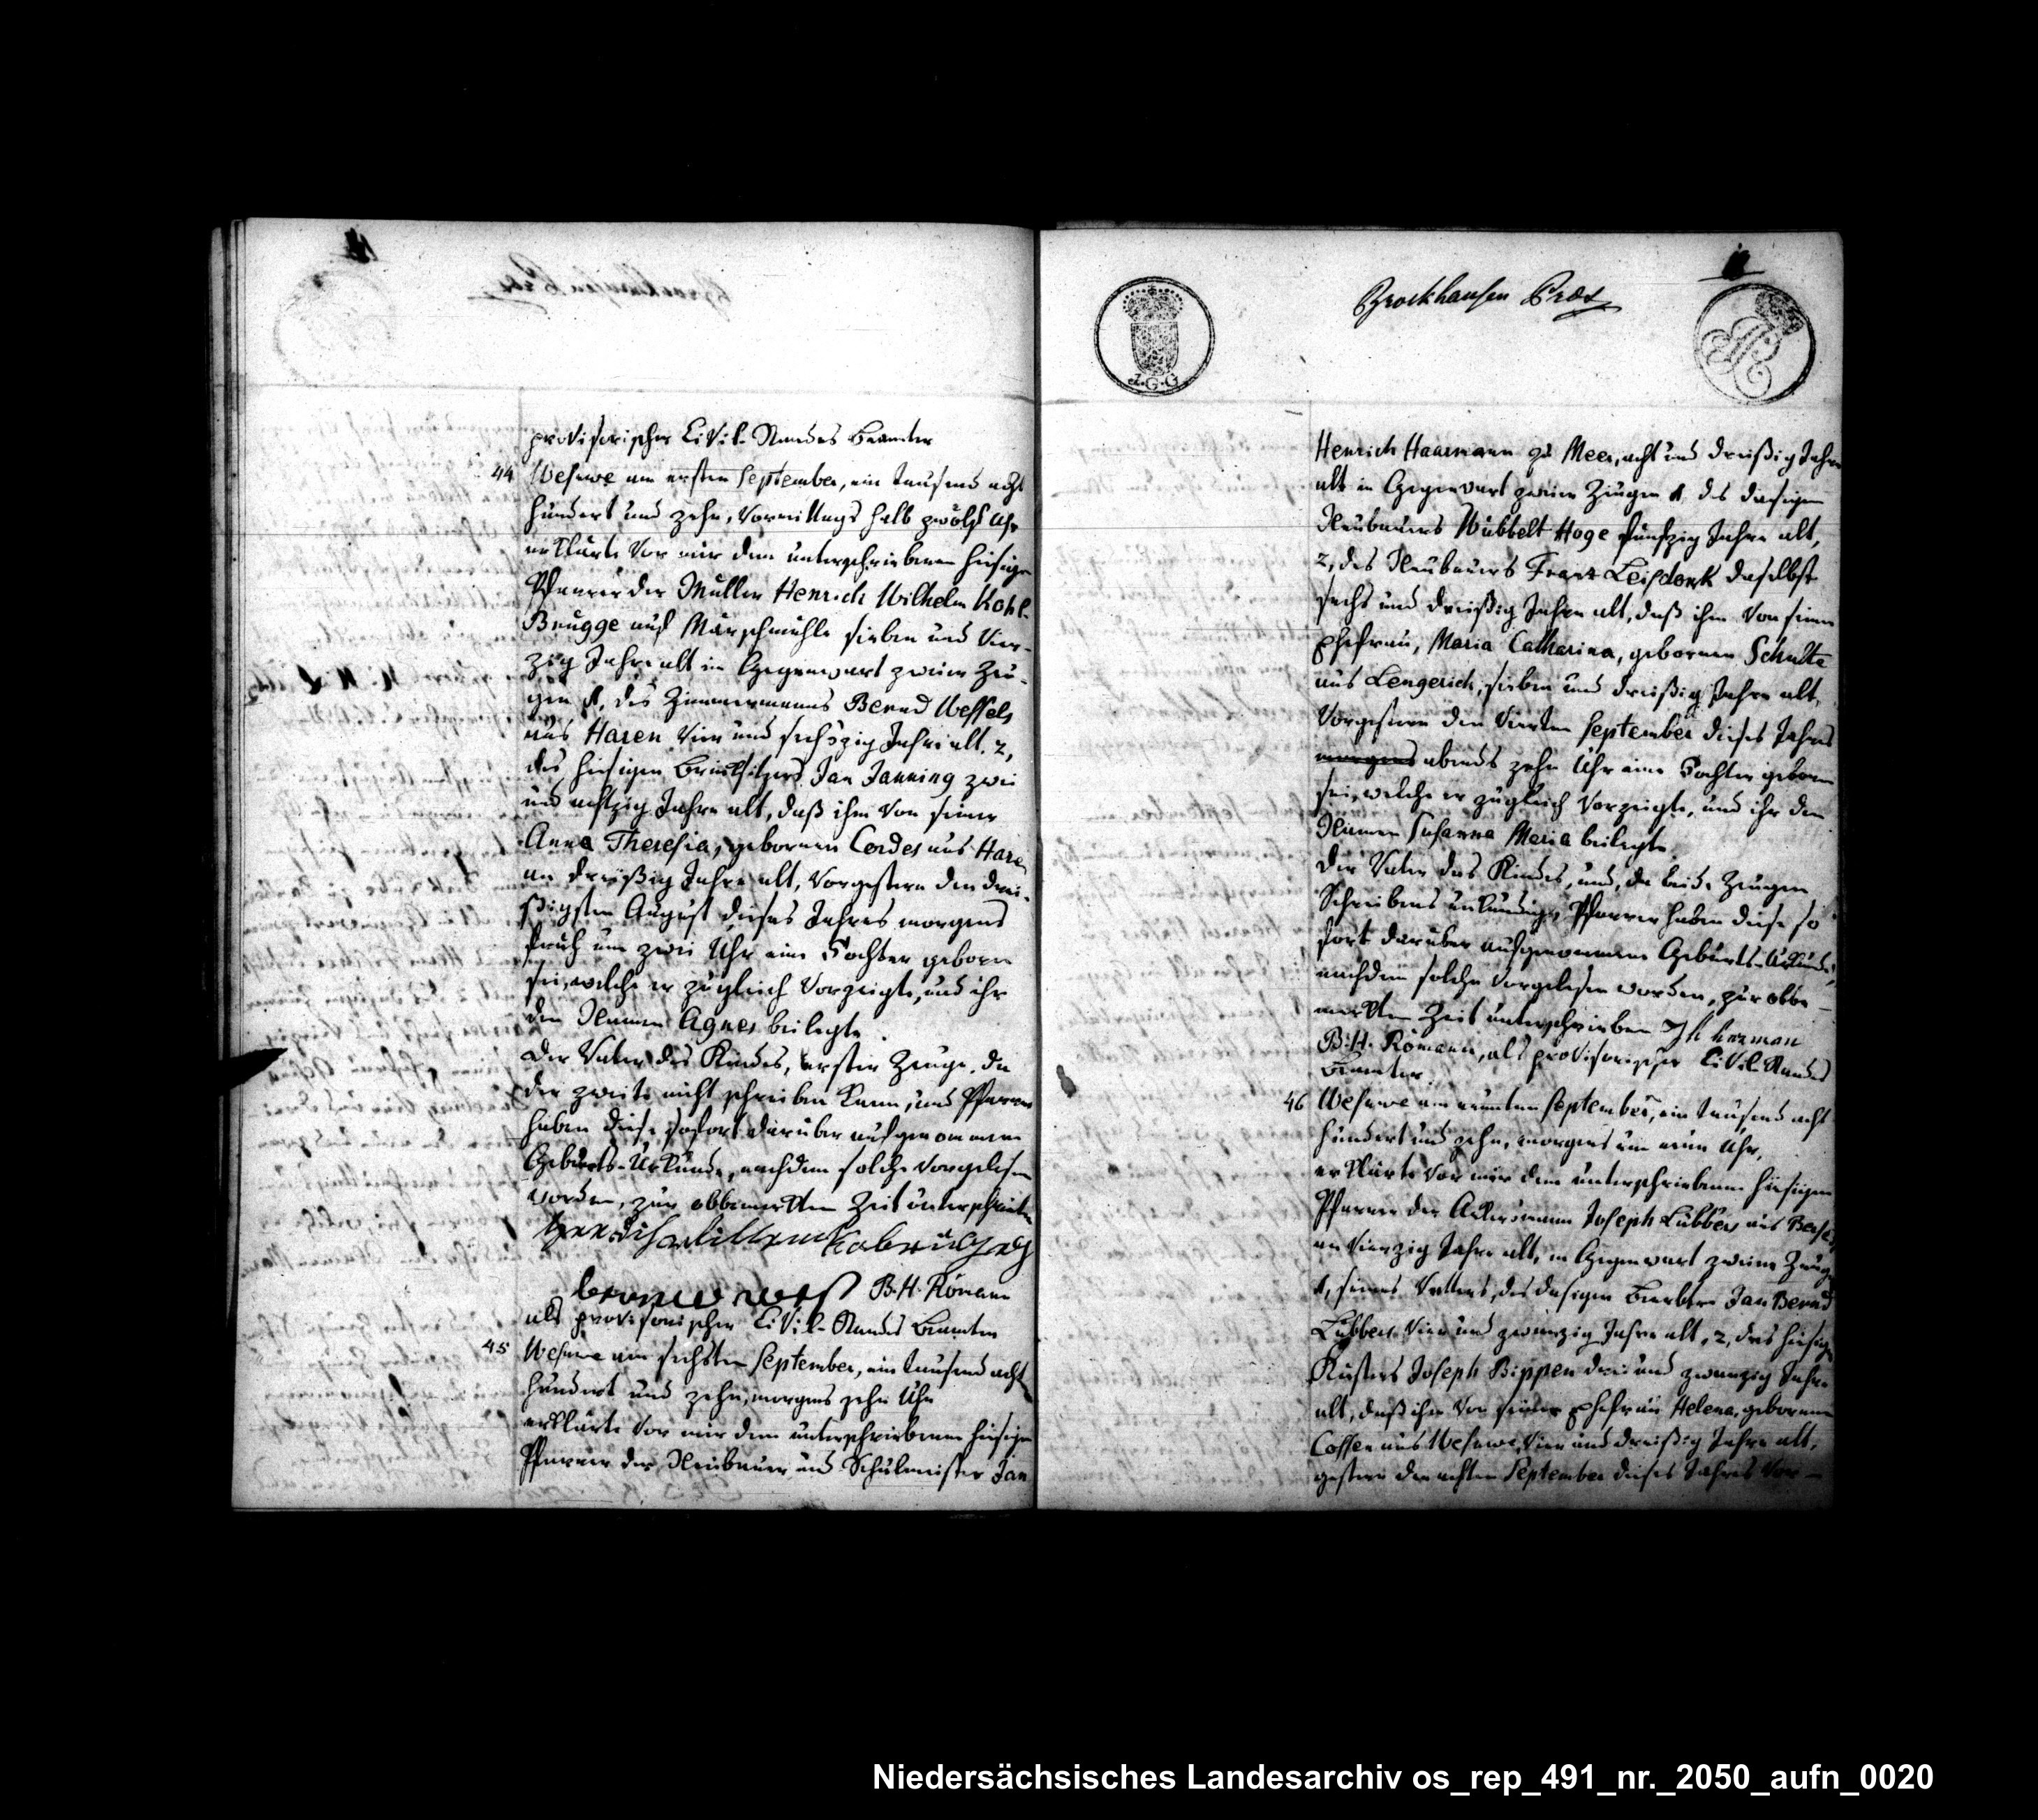 provisorischer Civil-Standes Beamter
44 Wesuwe am ersten September, ein tausend acht
hundert und zehn, Vormittags halb zwölf Uhr
erklärte vor mir dem unterschriebenen hiesigen
Pfarrer der Müller Henrich Wilhelm Kohl-
Brügge auf Märschmühle sieben und vier-
zig Jahre alt in Gegenwart zweier Zeu-
gen 1, des Zimmermanns Bernd Wessels
aus Haren vier und sechszig Jahre alt. 2,
des hiesigen Brinksitzers Jan Janning zwei
und achtzig Jahre alt, daß ihm von seiner
Anna Theresia, gebornen Cordes aus Haren
an dreißig Jahre alt, vorgestern den drei-
ßigsten August dieses Jahres morgens
früh um zwei Uhr eine Tochter geboren
sei, welche er zugleich vorzeigte, und ihr
den Namen Agnes beilegte.
Der Vater des Kindes, erster Zeuge, da
der zweite nicht schreiben kann, und Pfarrer
haben diese sofort darüber aufgenommene
Geburts-Urkunde, nachdem solche vorgelesen
worden, zur obbemerkten Zeit unterschrieben
B. H. Römann
als provisorischer Civil-Standes Beamter
45 Wesuwe am sechsten September, ein tausend acht
hundert und zehn, morgens zehn Uhr
erklärte vor mir dem unterschriebenen hiesigen
Pfarrer der Neubauer und Schulmeister Jan
Brockhausen Präs
J.G.G
Henrich Haarmann zu Meer, acht und dreißig Jahre
alt in Gegenwart zweier Zeugen 1, des dasigen
Neubauers Wübbelt Hoge fünfzig Jahre alt,
2, des Neubauers Franz Leisdonk daselbst
sechs und dreißig Jahre alt, daß ihm von seiner
Ehefrau, Maria Catharina, gebornen Schulte
aus Lengerich, sieben und dreißig Jahre alt,
vorgestern den vierten September dieses Jahres
morgens abends zehn Uhr eine Tochter geboren
sei, welche er zugleich vorzeigte, und ihr den
Namen Susanna Maria beilegte
Der Vater des Kindes, und, da beide Zeugen
Schreibens unkundig, Pfarrer haben diese so
fort darüber aufgenommene Geburts-Urkunde,
nachdem solche vorgelesen worden, zur obbe-
merkten Zeit unterschrieben J H harman
B. H. Römann, als provisorischer Civil-Standes
Beamter.
46 Wesuwe am neunten September, ein tausend acht
hundert und zehn, morgens um neun Uhr,
erklärte vor mir dem unterschriebenen hiesigen
Pfarrer der Ackersmann Joseph Lübbers aus
an vierzig Jahre alt, in Gegenwart zweier Zeugen
1, seines Vetters, des dasigen Jan Bernd
Lübbers vier und zwanzig Jahre alt, 2, des hiesigen
Küsters Joseph Bippen drei und zwanzig Jahre
alt, daß ihm von seiner Ehefrau Helena, gebornen
Cosse aus Wesuwe, vier und dreißig Jahre alt,
gestern den achten September dieses Jahres Vor-
Niedersächsisches Landesarchiv os_rep_491_nr._2050_aufn_0020